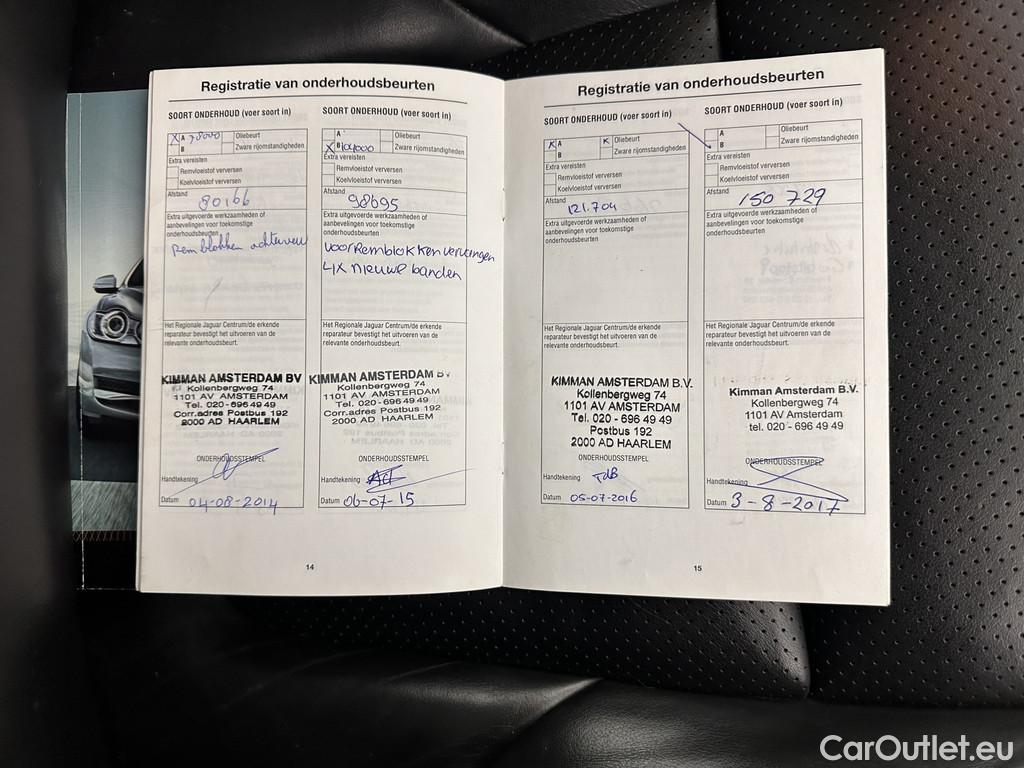 Registratie van onderhoudsbeurten
SOORT ONDERHOUD (voer soort in)
X A 78000 Oliebeurt
B Zware rijomstandigheden
Extra vereisten
Remvloeistof verversen
Koelvloeistof verversen
Afstand
80166
Extra uitgevoerde werkzaamheden of
aanbevelingen voor toekomstige
onderhoudsbeurten
Remblokken achter
Het Regionale Jaguar Centrum/de erkende
reparateur bevestigt het uitvoeren van de
relevante onderhoudsbeurt.
KIMMAN AMSTERDAM BV
Kollenbergweg 74
1101 AV AMSTERDAM
Tel. 020 - 696 49 49
Corr.adres Postbus 192
2000 AD HAARLEM
ONDERHOUDSSTEMPEL
Handtekening
Datum 04-08-2014
SOORT ONDERHOUD (voer soort in)
A Oliebeurt
X B 104000 Zware rijomstandigheden
Extra vereisten
Remvloeistof verversen
Koelvloeistof verversen
Afstand
98695
Extra uitgevoerde werkzaamheden of
aanbevelingen voor toekomstige
onderhoudsbeurten
voorRemblokken vervangen
4x nieuwe banden
Het Regionale Jaguar Centrum/de erkende
reparateur bevestigt het uitvoeren van de
relevante onderhoudsbeurt.
KIMMAN AMSTERDAM BV
Kollenbergweg 74
1101 AV AMSTERDAM
Tel. 020 - 696 49 49
Corr.adres Postbus 192
2000 AD HAARLEM
ONDERHOUDSSTEMPEL
Handtekening
Datum 06-07-15
14
Registratie van onderhoudsbeurten
SOORT ONDERHOUD (voer soort in)
X A X Oliebeurt
B Zware rijomstandigheden
Extra vereisten
Remvloeistof verversen
Koelvloeistof verversen
Afstand
121.704
Extra uitgevoerde werkzaamheden of
aanbevelingen voor toekomstige
onderhoudsbeurten
Het Regionale Jaguar Centrum/de erkende
reparateur bevestigt het uitvoeren van de
relevante onderhoudsbeurt.
KIMMAN AMSTERDAM B.V.
Kollenbergweg 74
1101 AV AMSTERDAM
Tel. 020 - 696 49 49
Postbus 192
2000 AD HAARLEM
ONDERHOUDSSTEMPEL
Handtekening
Datum 05-07-2016
SOORT ONDERHOUD (voer soort in)
A Oliebeurt
B Zware rijomstandigheden
Extra vereisten
Remvloeistof verversen
Koelvloeistof verversen
Afstand
150 729
Extra uitgevoerde werkzaamheden of
aanbevelingen voor toekomstige
onderhoudsbeurten
Het Regionale Jaguar Centrum/de erkende
reparateur bevestigt het uitvoeren van de
relevante onderhoudsbeurt.
Kimman Amsterdam B.V.
Kollenbergweg 74
1101 AV Amsterdam
tel. 020 - 696 49 49
ONDERHOUDSSTEMPEL
Handtekening
Datum 3-8-2017
15
CarOutlet.eu